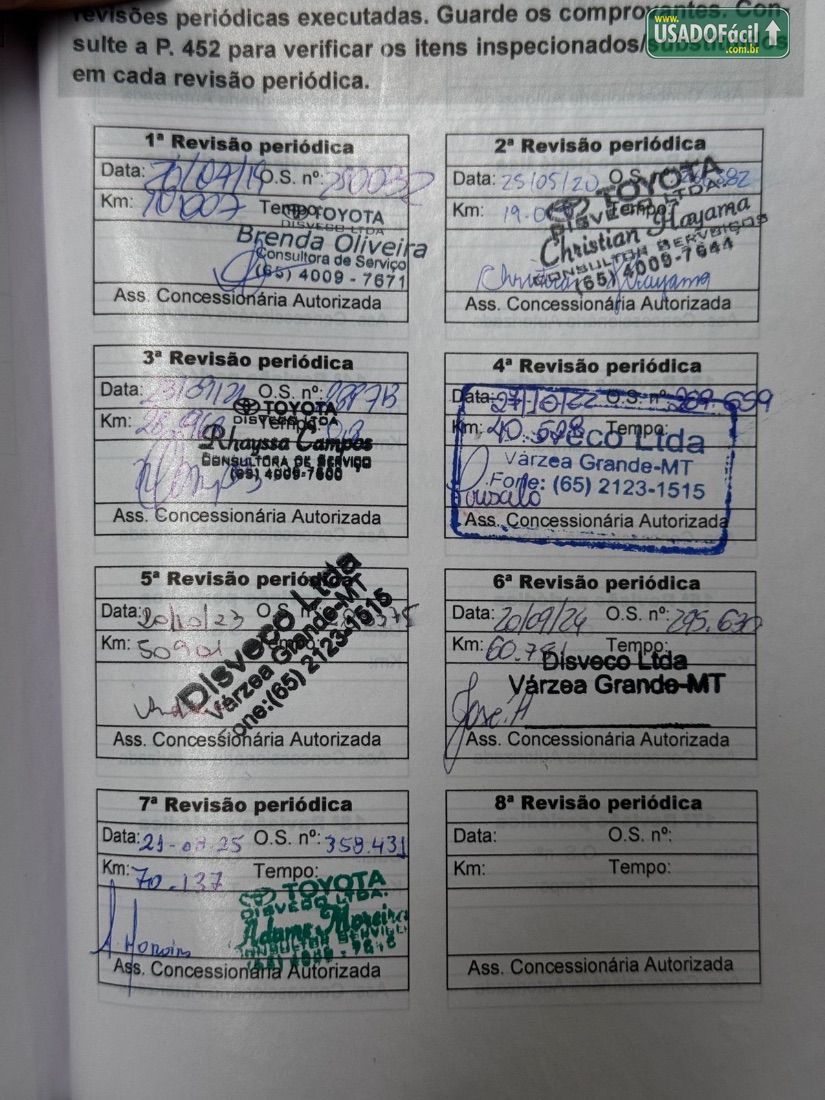 revisões periódicas executadas. Guarde os comprovantes. Con-
sulte a P. 452 para verificar os itens inspecionados/substituídos
em cada revisão periódica.
USADOFácil
.com.br
1ª Revisão periódica
Data: O.S. nº:
Km: 10007 Tempo:
TOYOTA
DISVECO LTDA
Brenda Oliveira
Consultora de Serviço
(65) 4009 - 7671
Ass. Concessionária Autorizada
2ª Revisão periódica
Data: 25/05/20 O.S. nº:
Km: Tempo:
TOYOTA
DISVECO LTDA.
Christian Hayama
CONSULTOR SERVIÇOS
(65) 4009-7644
Ass. Concessionária Autorizada
3ª Revisão periódica
Data: O.S. nº:
Km: Tempo:
TOYOTA
DISVECO LTDA
Rhayssa Campos
CONSULTORA DE SERVIÇO
(65) 4009-7600
Ass. Concessionária Autorizada
4ª Revisão periódica
Data: 27/10/22 O.S. nº: 269.659
Km: Tempo:
Disveco Ltda
Várzea Grande-MT
Fone: (65) 2123-1515
Ass. Concessionária Autorizada
5ª Revisão periódica
Data: 20/10/23 O.S. nº:
Km: 50901 Tempo:
Disveco Ltda
Várzea Grande-MT
Fone:(65) 2123-1515
Ass. Concessionária Autorizada
6ª Revisão periódica
Data: 20/09/24 O.S. nº: 295.630
Km: Tempo:
Disveco Ltda
Várzea Grande-MT
José. A
Ass. Concessionária Autorizada
7ª Revisão periódica
Data: O.S. nº: 358.431
Km: 70.137 Tempo:
TOYOTA
DISVECO LTDA.
Adams Moreira
CONSULTOR SERVIÇOS
Ass. Concessionária Autorizada
8ª Revisão periódica
Data: O.S. nº:
Km: Tempo:
Ass. Concessionária Autorizada